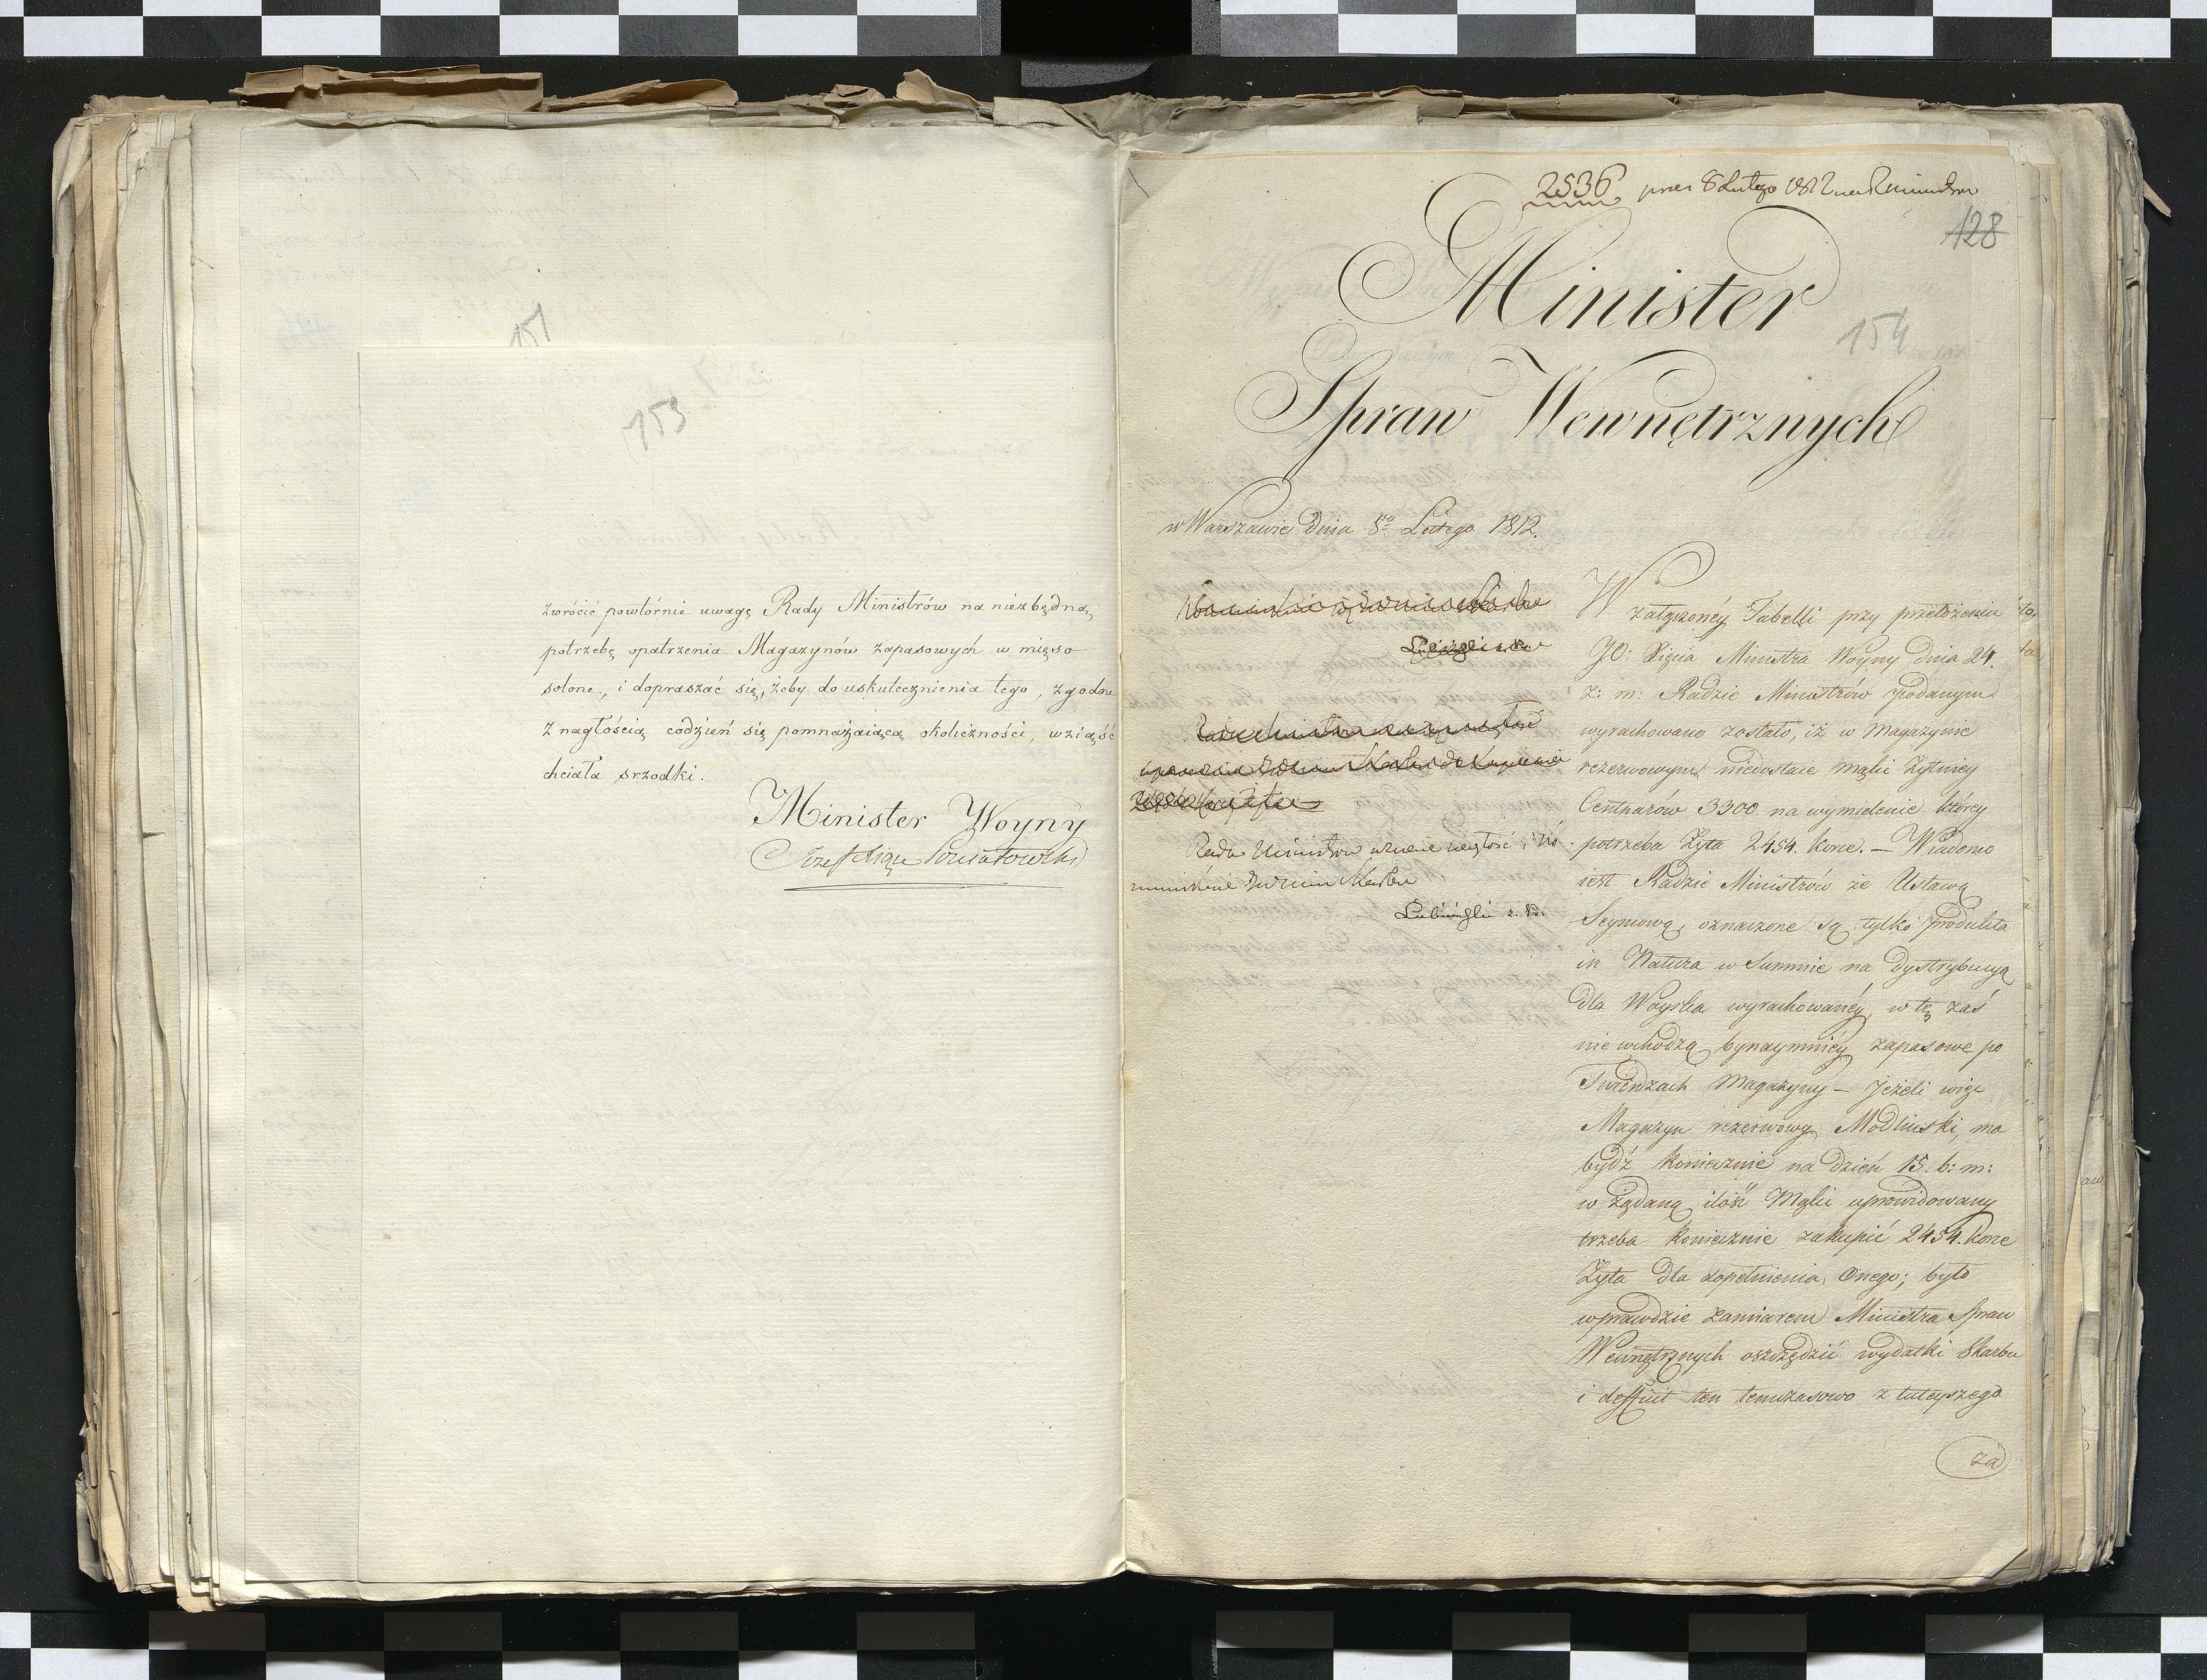 151
153
zwrócić powtórnie uwagę Rady Ministrów na niezbędną
potrzebę opatrzenia Magazynów zapasowych w mięso
solone, i dopraszać się, żeby do uskutecznienia tego, zgodne
z nagłością codzień się pomnażaiącą okoliczności, wziąść
chciała srzodki.
Minister Woyny
Józef Xiąże Poniatowski
2536 prez 8 Lutego 1812
128
Minister
154
Spraw Wewnętrznych
w Warszawie Dnia 5go Lutego 1812.
Rada Ministrów uznaie nagłość i ko-
Skarbu
Lubieński
W załączonéy Tabelli przy przełożeniu
JO: Xięcia Ministra Woyny dnia 24.
z: m: Radzie Ministrów podanym
wyrachowano zostało, iż w Magazynie
rezerwowym niedostaie mąki Żytniey
Centnarów 3300 na wymielenie którey
potrzeba Żyta 2454. korce. — Wiadomo
iest Radzie Ministrów że Ustawą
Seymową, oznaczone są tylko produkta
in Natura w Summie na dystrybucyą
dla Woyska wyrachowanéy, w tę zaś
nie wchodzą bynaymniéy zapasowe po
Twierdzach Magazyny — Jeżeli więc
Magazyn rezerwowy Modliński, ma
bydź koniecznie na dzień 15. b: m:
w żądaną ilość Mąki uprowidowany
trzeba koniecznie zakupić 2454. korce
Żyta dla dopełnienia Onego; było
wprawdzie zamiarem Ministra Spraw
Wewnętrznych oszczędzić wydatki Skarbu
i defficit ten temczasowo z tuteyszego
za